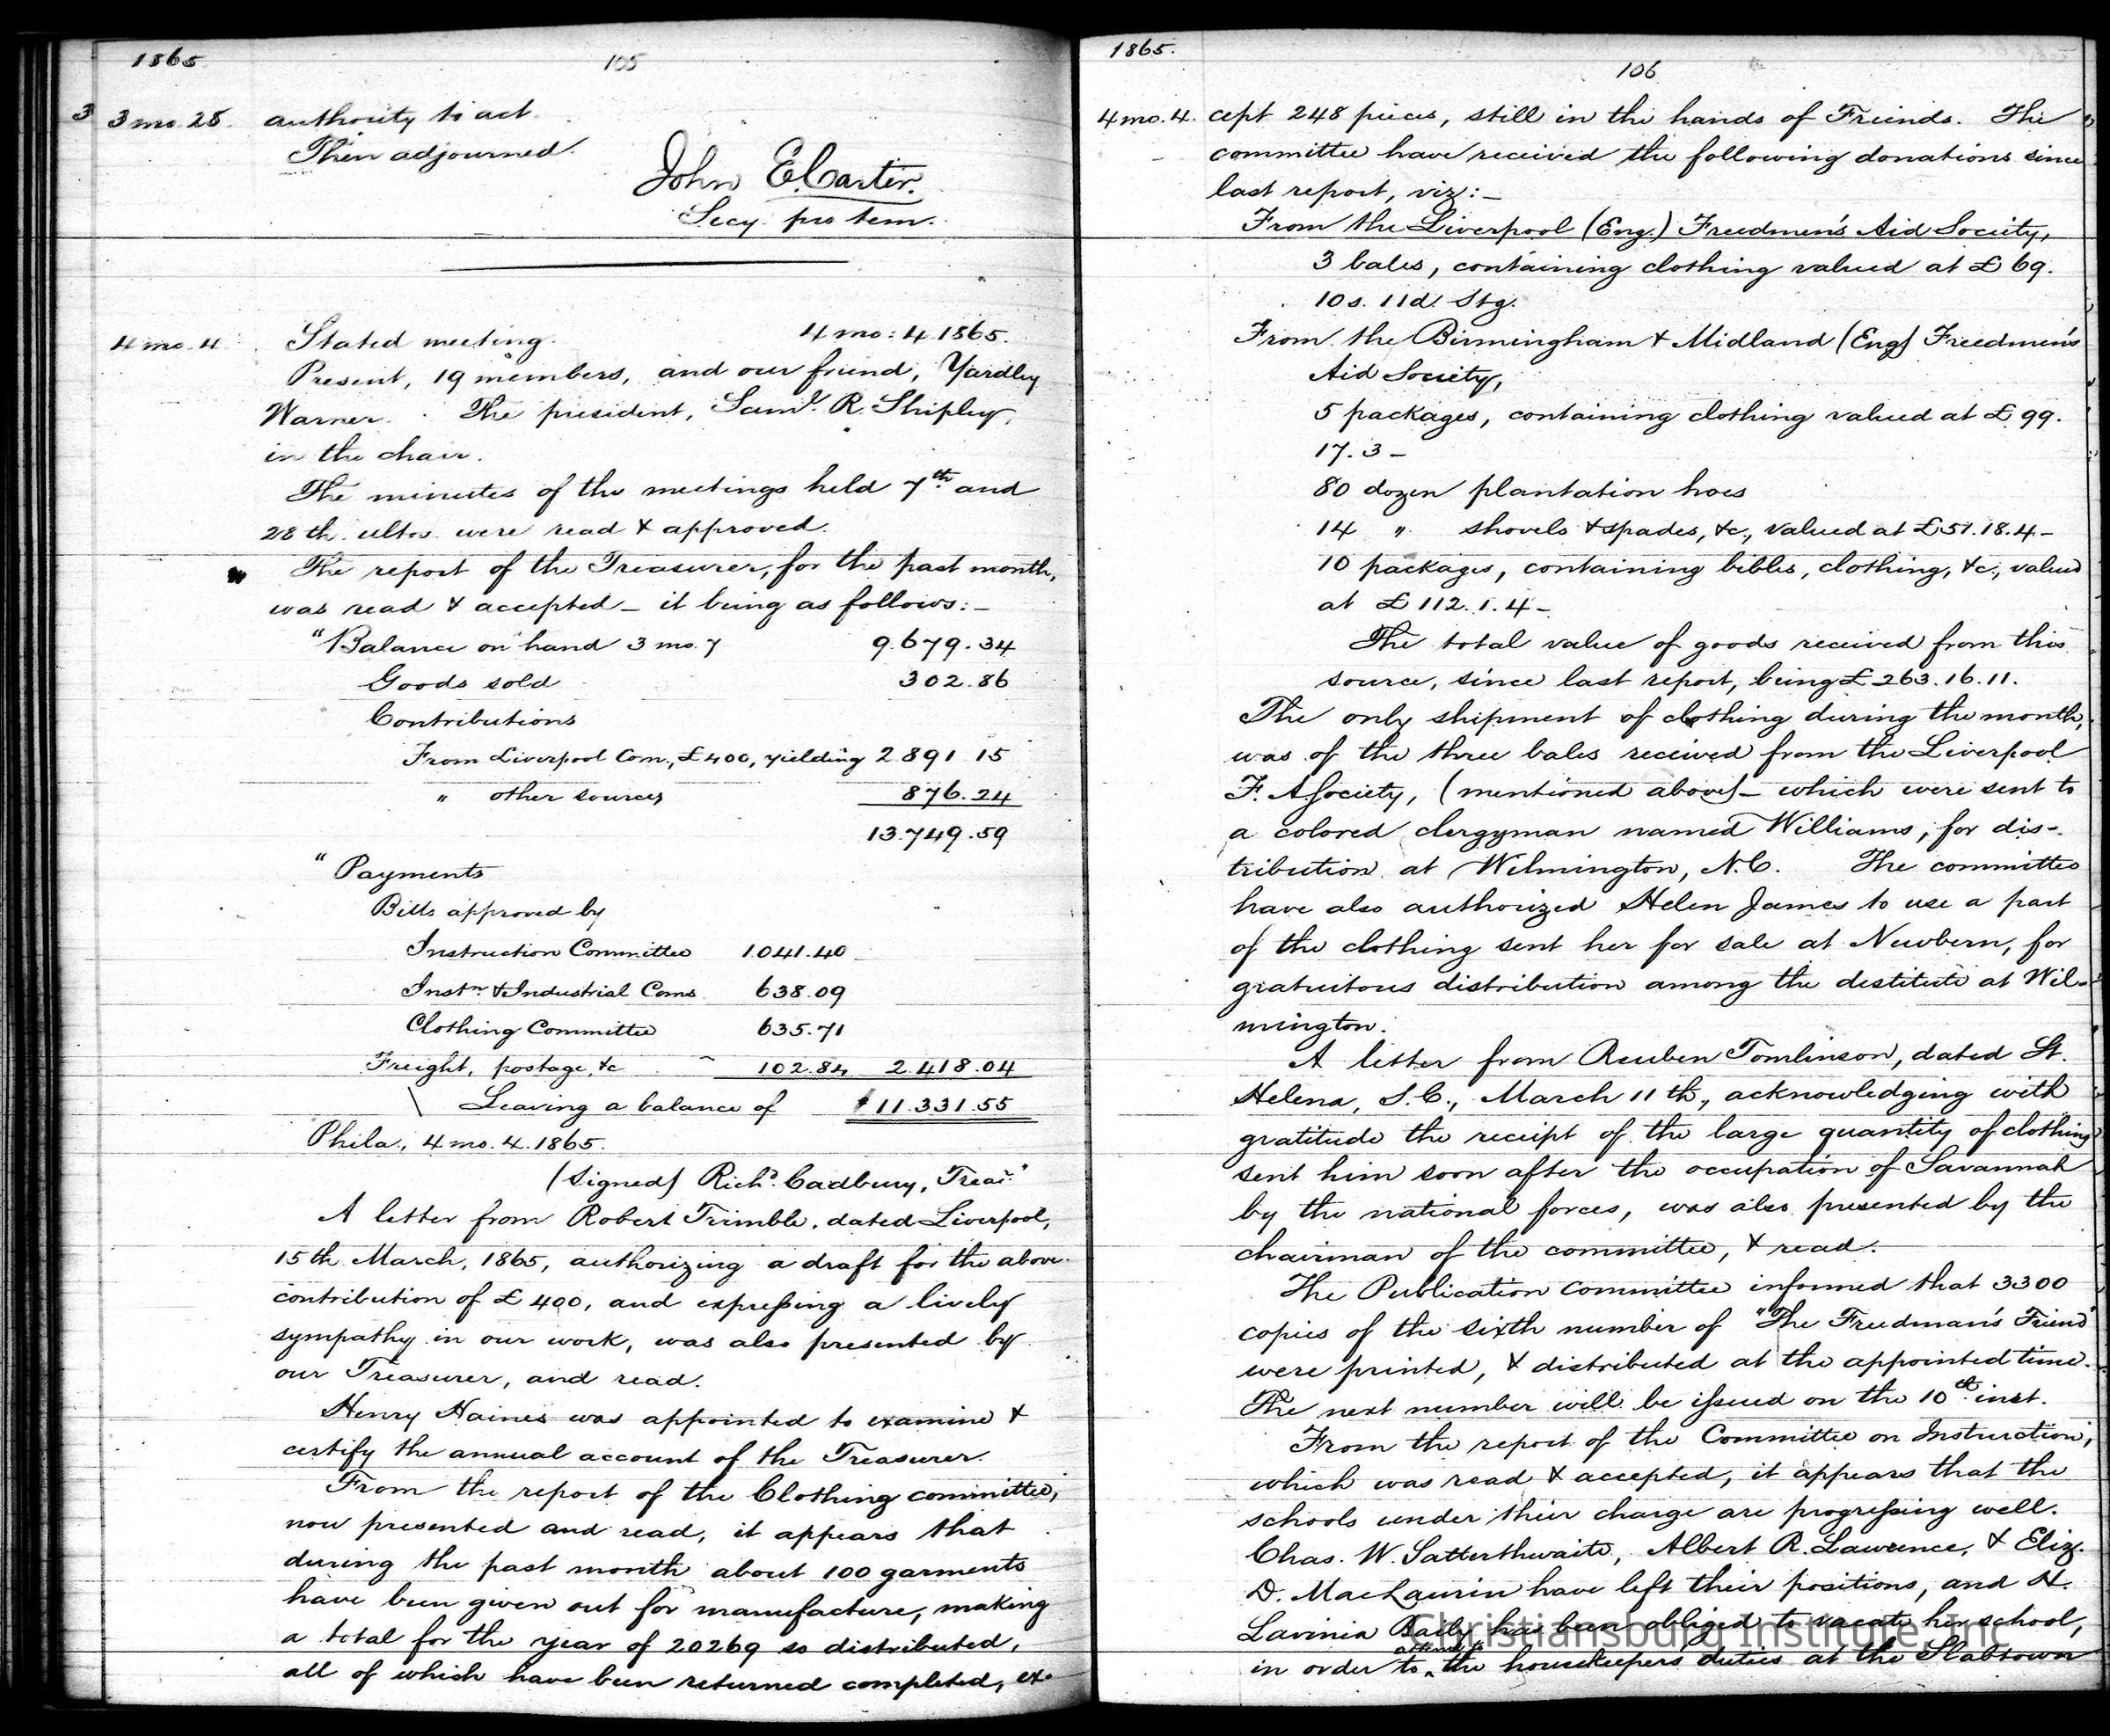 1865
105
3 3 mo. 28. authority to act.
Then adjourned.
John E. Carter.
Secy. pro tem.
4 mo. 4. Stated meeting. 4 mo: 4. 1865.
Present, 19 members, and our friend, Yardley
Warner. The president, Saml. R. Shipley,
in the chair.
The minutes of the meetings held 7th and
28th ulto. were read & approved.
The report of the Treasurer, for the past month,
was read & accepted – it being as follows: –
"Balance on hand 3 mo. 7 9.679.34
Goods sold 302.86
Contributions
From Liverpool Com., £400, yielding 2 891 15
" other sources 876.24
13.749.59
"Payments
Bills approved by
Instruction Committee 1.041.40
Instn. & Industrial Coms 638.09
Clothing Committee 635.71
Freight, postage, &c 102.84 2.418.04
Leaving a balance of $11.331.55
Phila., 4 mo. 4. 1865.
(Signed) Richd. Cadbury, Treasr."
A letter from Robert Trimble, dated Liverpool,
15th March, 1865, authorizing a draft for the above
contribution of £400, and expressing a lively
sympathy in our work, was also presented by
our Treasurer, and read.
Henry Haines was appointed to examine &
certify the annual account of the Treasurer.
From the report of the Clothing committee,
now presented and read, it appears that
during the past month about 100 garments
have been given out for manufacture, making
a total for the year of 20269 so distributed,
all of which have been returned completed, ex-
1865.
106
4 mo. 4. cept 248 pieces, still in the hands of Friends. The
committee have received the following donations since
last report, viz: –
From the Liverpool (Eng.) Freedmen's Aid Society,
3 bales, containing clothing valued at £69.
10s. 11d. Stg.
From the Birmingham & Midland (Eng) Freedmen's
Aid Society,
5 packages, containing clothing valued at £99.
17.3 –
80 dozen plantation hoes
14 " shovels & spades, &c., valued at £51.18.4 –
10 packages, containing bibles, clothing, &c., valued
at £112.1.4 –
The total value of goods received from this
source, since last report, being £263.16.11.
The only shipment of clothing during the month,
was of the three bales received from the Liverpool
F. A Society, (mentioned above) – which were sent to
a colored clergyman named Williams, for dis-
tribution at Wilmington, N.C. The committee
have also authorized Helen James to use a part
of the clothing sent her for sale at Newbern, for
gratuitous distribution among the destitute at Wil-
mington.
A letter from Reuben Tomlinson, dated St.
Helena, S.C., March 11th, acknowledging with
gratitude the receipt of the large quantity of clothing
sent him soon after the occupation of Savannah
by the national forces, was also presented by the
chairman of the committee, & read.
The Publication committee informed that 3300
copies of the sixth number of "The Freedman's Friend"
were printed, & distributed at the appointed time.
The next number will be issued on the 10th inst.
From the report of the Committee on Instruction,
which was read & accepted, it appears that the
schools under their charge are progressing well.
Chas. W. Satterthwaite, Albert R. Lawrence, & Eliz.
D. MacLaurin have left their positions, and H.
Lavinia Baily has been obliged to vacate her school,
in order to attend to the housekeepers duties at the Slabtown
Christiansburg Institute, Inc